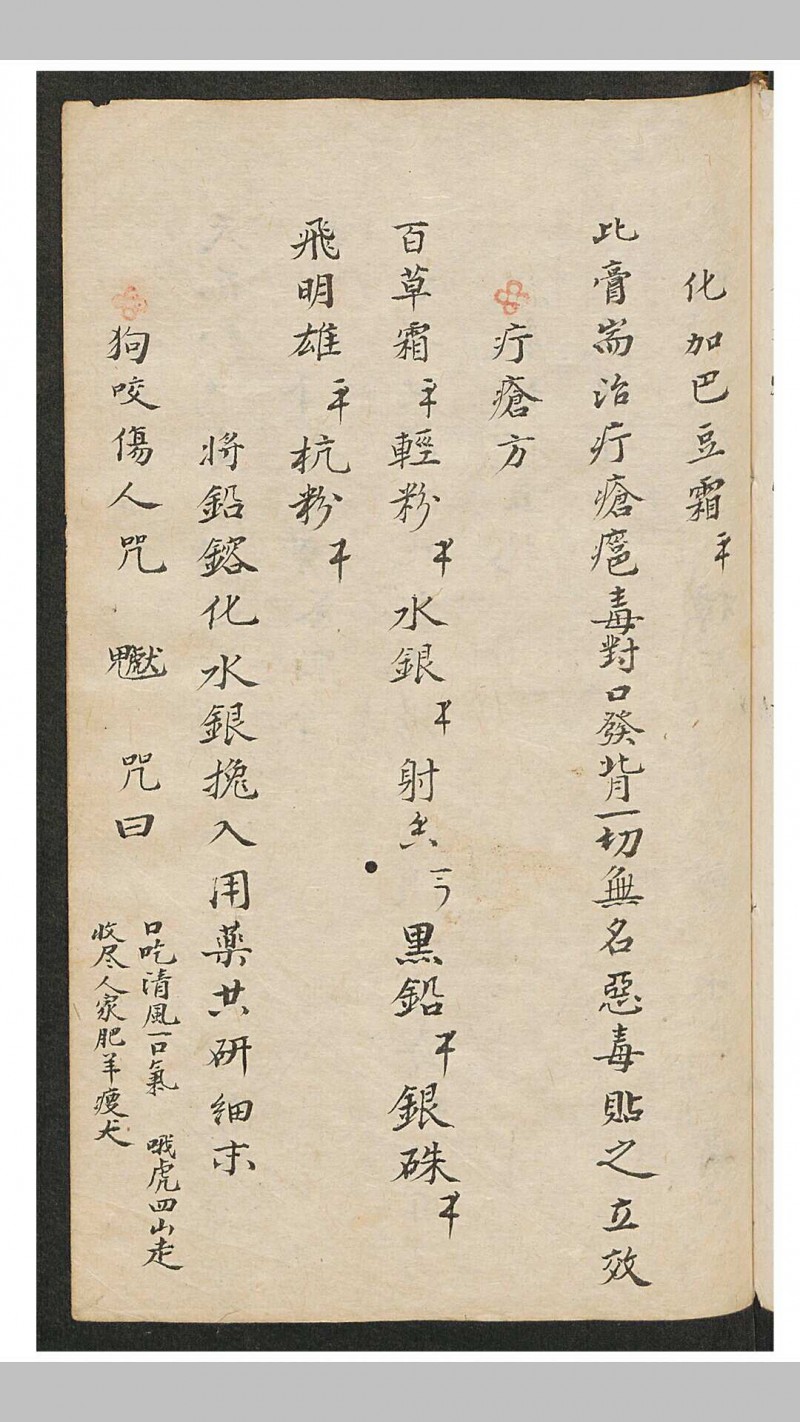 化加巴豆霜
此膏耑治疔瘡瘪毒對口發背一切無名惡毒貼之立效
疔瘡方
百草霜 輕粉 水銀 射香 黑鉛 銀硃
飛明雄 杭粉
將鉛鎔化水銀攙入用藥共研細末
狗咬傷人咒 咒曰
口吃清風一口氣 哦虎四山走
收尽人家肥羊瘦犬